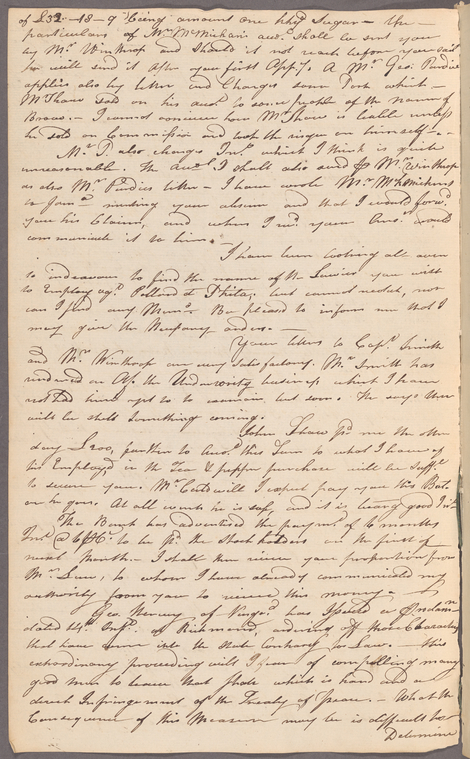 of £32-18-9 being amount one hhd Sugar - the
particulars of Mr McMichans acct shall be sent you
by Mr Winthrop and should it not reach before you sail
he will send it after you first oppy. A Mr Geo: Purdie
applies also by letter and Charges some Pork which
McShaw sold on his acct to some people of the name of
I cannot conceive how Mr Shaw is liable unless
he sold on Commission and took the risque on himself
Mr P. also charges Int which I think is quite
unreasonable. The Acct I shall also send p Mr Winthrop
as also Mr Purdies letter - I have wrote Mr McMichans
in Jama. that you absent and that I would forwd
you his Claim, and when I recd your Ansr would
communicate it to him
I have been looking all over
to endeavour to find the name of the Lawier you wish
to Employ agt Pollard at Phila; but cannot recolect, nor
can I find any Memo. Be pleased to inform me that I
may give the Necessary orders.
Your letters to Capt Smith
and Mr Winthrop are very satisfactory. Mr Smith has
rendered an the Underwriting business which I have
not had time yet to examine but soon. He says there
will be still something coming.
John Shaw pd me the other
day £200, further to Acct this Sum to what I have of
his Employed in the Tea & pepper purchase will be Suffit
to secure you. Mr will I expect pay you this Bale
on he goes. At all events he is safe, and it is bearg good Int
The Bank has advertised the paymt of 6 months
Int @ 6 to be pd the Stock holders on the first of
next Month - I shall then receive your proportion from
Mr Low, to whom I have already communicated my
authority from you to receive this money
Geo Mercury of has Issued a
dated 14th Inst at Richmond, ordering off those Characters
that have come into the State Contrary to Law. - this
extraordinary proceeding will I fear of compelling many
good men to leave that State which is hard and a
direct Infringement of the Treaty of Peace. - What the
Consequence of this Measure may be is difficult to
Determine